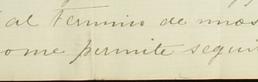 al Termino de mas
ome permite segui